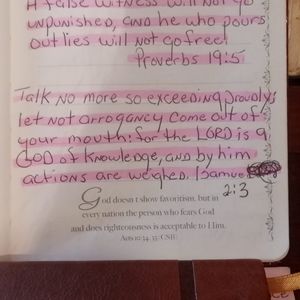 A false witness will not go
unpunished, and he who pours
out lies will not go free!
Proverbs 19:5
Talk no more so exceeding proudly;
let not arrogancy come out of
your mouth: for the LORD is a
GOD of knowledge, and by him
actions are weighed. 1 Samuel
2:3
God doesn't show favoritism, but in
every nation the person who fears God
and does righteousness is acceptable to Him.
Acts 10:34, 35 (CSB)